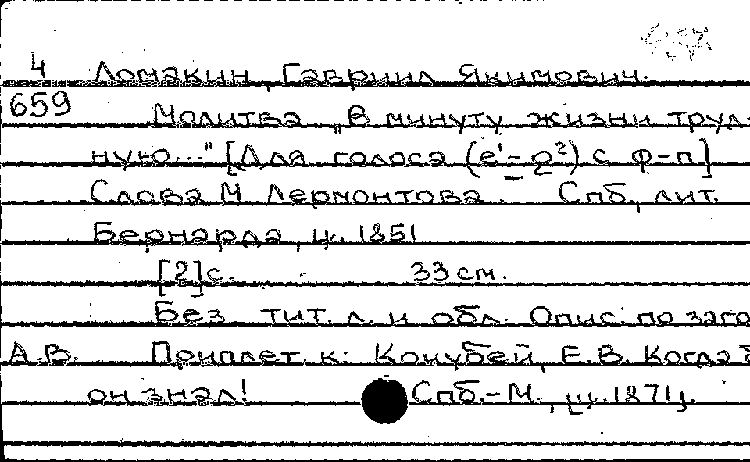 4 Ломакин, Гавриил Якимович.
659 Молитва „В минуту жизни труд-
ную..." [Для голоса (e¹-g²) с ф-п]
Слова М. Лермонтова. Спб., лит.
Бернарда, ц. 1851
[2] с. 33 см.
Без тит. л. и обл. Опис. по заго
А.В. Приплет. к: Кочубей, Е.В. Когда б
он знал! Спб.-М., ц. 1871 г.